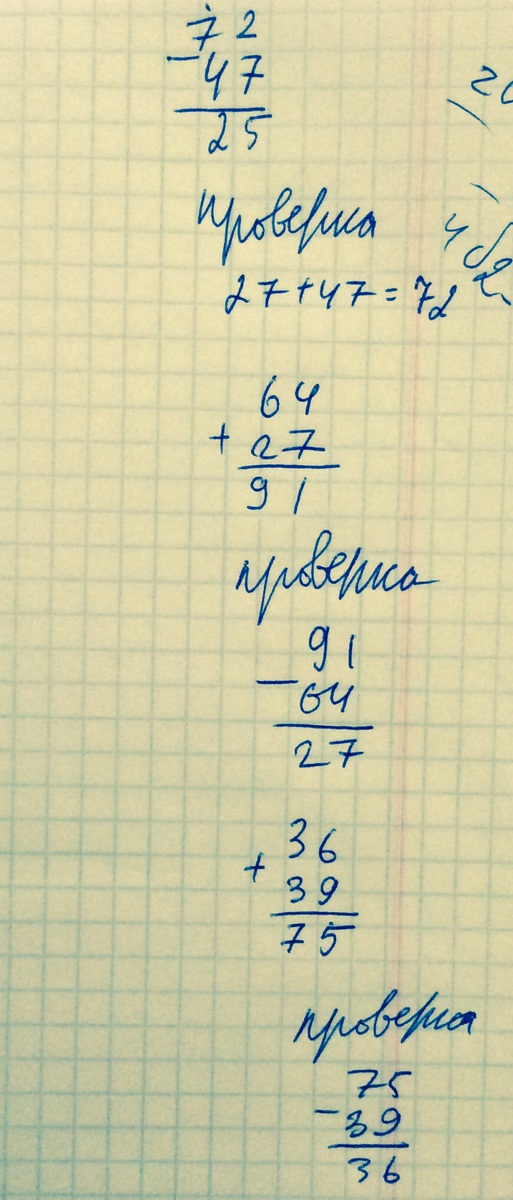 72
- 47
25
проверка
27+47=72
64
+ 27
91
проверка
91
- 64
27
36
+ 39
75
проверка
75
- 39
36